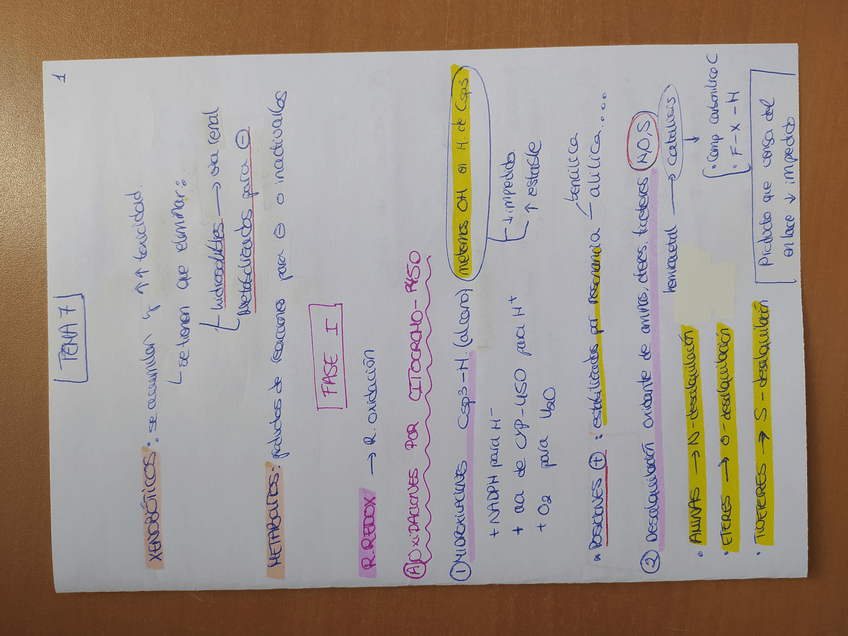 1
TEMA 7
XENOBIÓTICOS: se acumulan y ↑↑ toxicidad.
se tienen que eliminar:
hidrosolubles → via renal
Metabolizados para ⊖
METABOLITOS: productos de reacciones para ⊖ o inactivarlos
FASE I
R. REDOX → R. oxidación
Ⓐ OXIDACIONES POR CITOCROMO-P450
① HIDROXILACIONES Csp3-H (alcano) metemos OH en H de Csp3
+ NADPH para H⁻
↓ impedido
+ aa de CYP-450 para H⁺
↑ estable
+ O2 para H2O
* POSICIONES ⊕: estabilizados por resonancia
bencílica
alílica...
② Desalquilación oxidante de aminas, éteres, tioéteres N,O,S
hemiacetal → catálisis
• Comp carbonílico C
• F-X-H
• AMINAS → N-desalquilación
• ETERES → O-desalquilación
• TIOETERES → S-desalquilación
Producto que venga del
enlace ↓ impedido